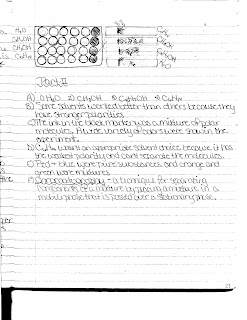 H₂O
CH₃OH
C₂H₅OH
C₆H₁₄
Part II
A) ① H₂O ② CH₃OH ③ C₂H₅OH ④ C₆H₁₄
B) Some solvents worked better than others because they
have stronger polarities.
C) The ink in the black marker was a mixture of polar
molecules. A wide variety of colors were shown in the
experiment.
D) C₆H₁₄ wasn't an appropriate solvent choice because it has
the weakest polarity and can't separate the molecules.
E) Red + blue were pure substances and orange and
green were mixtures.
F) Chromatography - a technique for separating
components of a mixture by placing a mixture in a
mobile phase that is passed over a stationary phase.